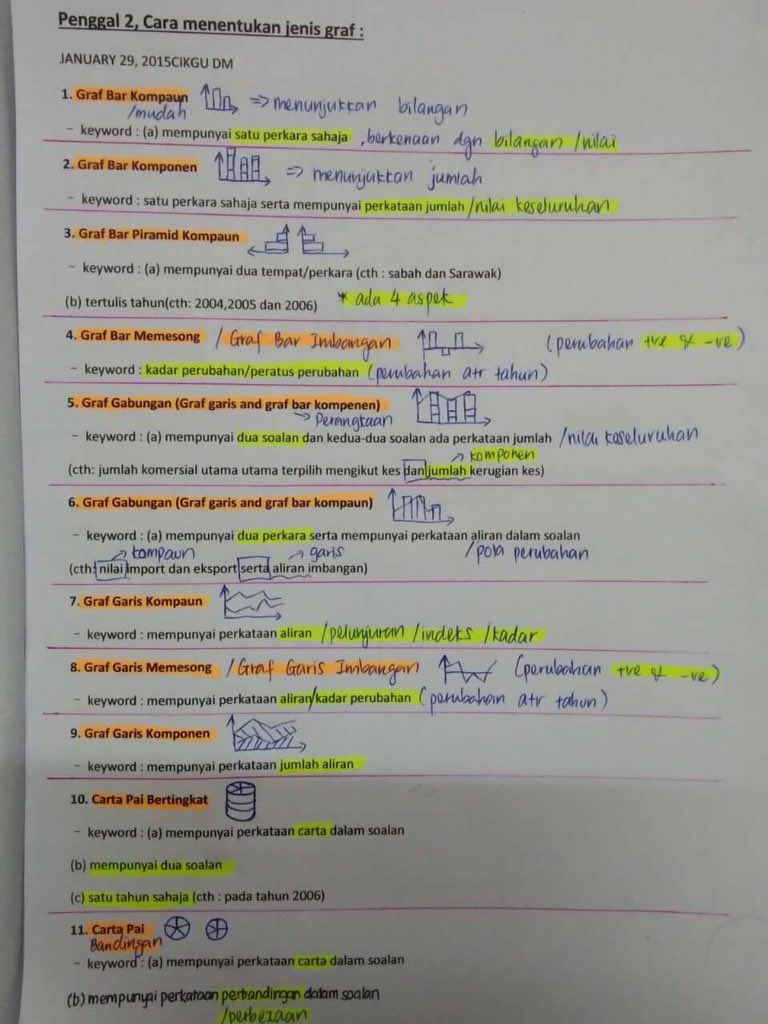 Penggal 2, Cara menentukan jenis graf :
JANUARY 29, 2015CIKGU DM
1. Graf Bar Kompaun => menunjukkan bilangan
/mudah
- keyword : (a) mempunyai satu perkara sahaja , berkenaan dgn bilangan /nilai
2. Graf Bar Komponen => menunjukkan jumlah
- keyword : satu perkara sahaja serta mempunyai perkataan jumlah /nilai keseluruhan
3. Graf Bar Piramid Kompaun
- keyword : (a) mempunyai dua tempat/perkara (cth : sabah dan Sarawak)
(b) tertulis tahun(cth: 2004,2005 dan 2006) * ada 4 aspek
4. Graf Bar Memesong / Graf Bar Imbangan (perubahan +ve & -ve)
- keyword : kadar perubahan/peratus perubahan (perubahan atr tahun)
5. Graf Gabungan (Graf garis and graf bar kompenen)
→ Perangkaan
- keyword : (a) mempunyai dua soalan dan kedua-dua soalan ada perkataan jumlah /nilai keseluruhan
→ komponen
(cth: jumlah komersial utama utama terpilih mengikut kes dan jumlah kerugian kes)
6. Graf Gabungan (Graf garis and graf bar kompaun)
- keyword : (a) mempunyai dua perkara serta mempunyai perkataan aliran dalam soalan
→ kompaun → garis /pola perubahan
(cth: nilai import dan eksport serta aliran imbangan)
7. Graf Garis Kompaun
- keyword : mempunyai perkataan aliran /pelunjuran /indeks /kadar
8. Graf Garis Memesong / Graf Garis Imbangan (perubahan +ve & -ve)
- keyword : mempunyai perkataan aliran/kadar perubahan (perubahan atr tahun)
9. Graf Garis Komponen
- keyword : mempunyai perkataan jumlah aliran
10. Carta Pai Bertingkat
- keyword : (a) mempunyai perkataan carta dalam soalan
(b) mempunyai dua soalan
(c) satu tahun sahaja (cth : pada tahun 2006)
11. Carta Pai
Bandingan
- keyword : (a) mempunyai perkataan carta dalam soalan
(b) mempunyai perkataan perbandingan dalam soalan
/perbezaan